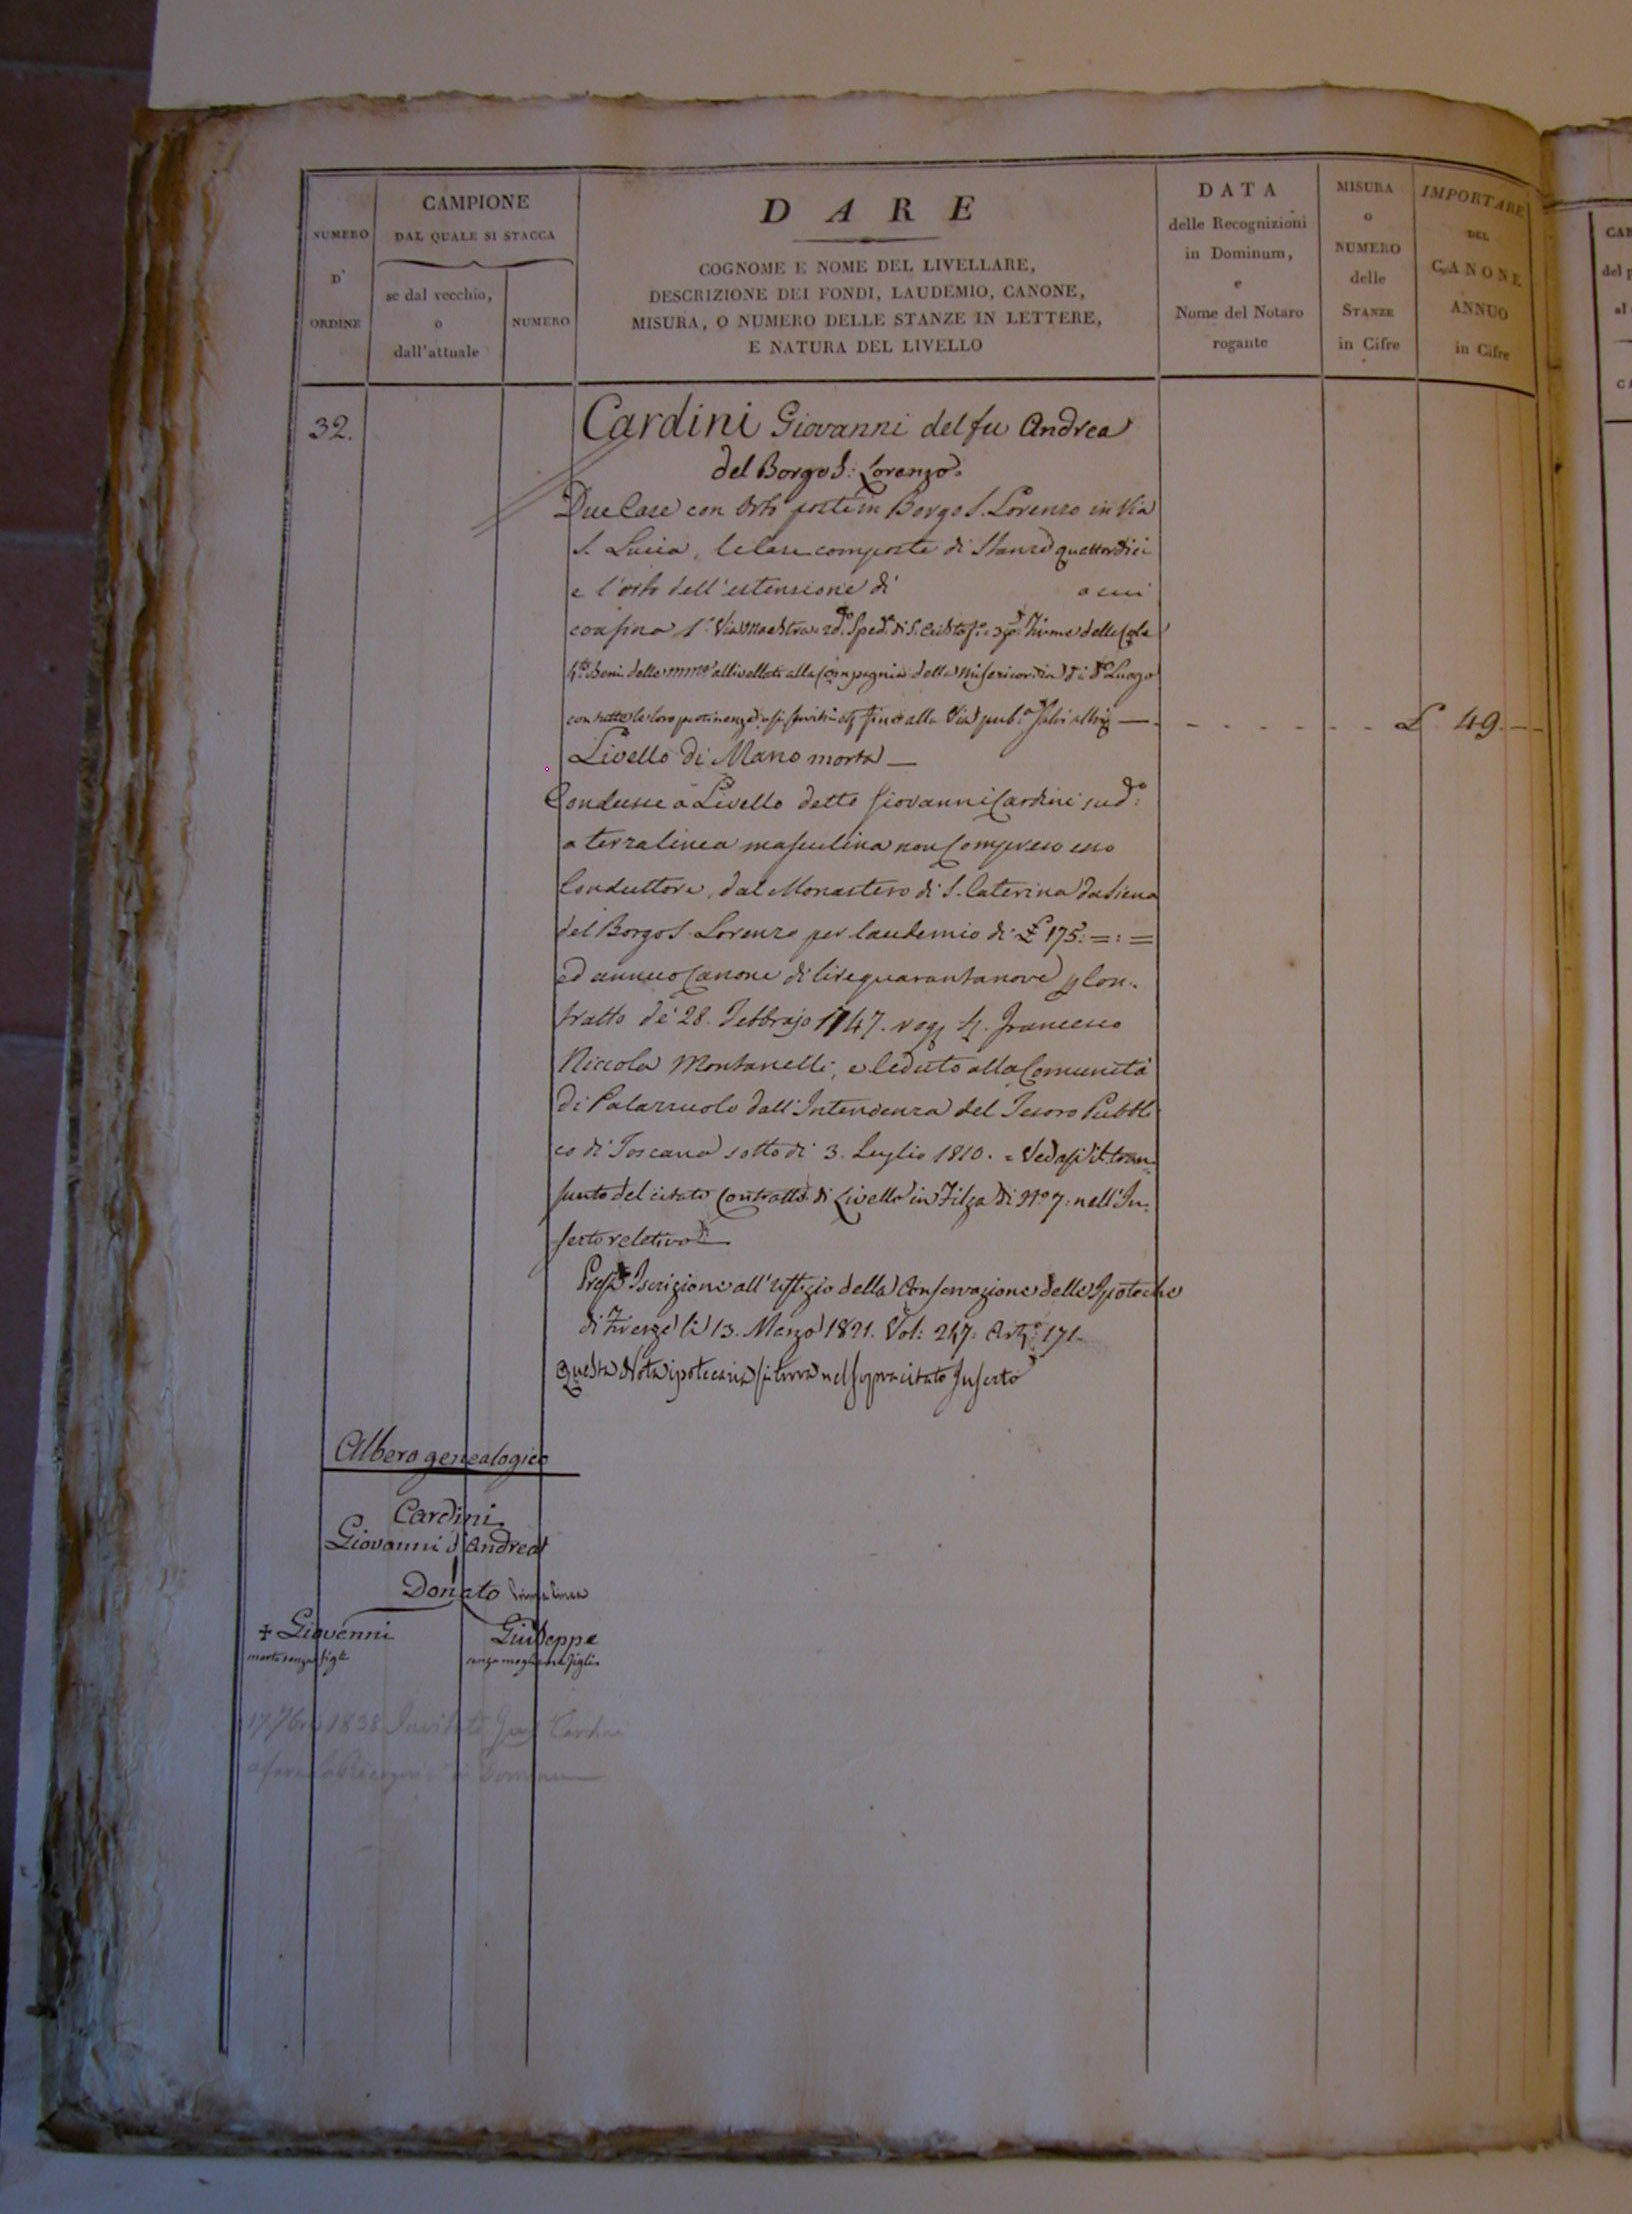 NUMERO
D'
ORDINE
CAMPIONE
DAL QUALE SI STACCA
se dal vecchio,
o
dall'attuale
NUMERO
DARE
COGNOME E NOME DEL LIVELLARE,
DESCRIZIONE DEI FONDI, LAUDEMIO, CANONE,
MISURA, O NUMERO DELLE STANZE IN LETTERE,
E NATURA DEL LIVELLO
DATA
delle Recognizioni
in Dominum,
e
Nome del Notaro
rogante
MISURA
o
NUMERO
delle
STANZE
in Cifre
IMPORTARE
DEL
CANONE
ANNUO
in Cifre
32.
Cardini Giovanni del fu Andrea
del Borgo S: Lorenzo.
Due Case con Orto poste in Borgo S. Lorenzo in Via
S. Lucia, le Case composte di Stanze quattordici
e l'orto dell'estensione di a cui
confina 1.° Via Maestra 2.° Sped.e di S. 3.° Fiume della
4.to Beni delle allivellati alla Compagnia della Misericordia di d.o Luogo
con tutte le loro pertinenze fino alla Via pub.a Salvi £ 49. —
Livello di Mano morta —
Condusse a Livello detto Giovanni Cardini sud.o
a terza linea masculina non Compreso esso
Conduttore, dal Monastero di S. Caterina da Siena
del Borgo S. Lorenzo per laudemio di £ 175: = : =
ed annuo Canone di lire quarantanove p Con:
tratto de' 28. Febbrajo 1747. rog Francesco
Niccola Montanelli, e Ceduto alla Comunità
di Palazzuolo dall'Intendenza del Tesoro Pubbli
co di Toscana sotto di 3. Luglio 1810. = Vedasi il tran:
sunto del citato Contratto di Livello in Filza di N.o 7: nell'In:
serto relativo —
Presa Iscrizione all'Uffizio della Conservazione delle Ipoteche
di Firenze li 13. Marzo 1821. Vol: 247: Art.o 171.
Questa Nota ipotecaria si trova nel sopracitato Inserto
Albero genealogico
Cardini
Giovanni d'Andrea
Donato prima linea
+ Giovanni
morto senza figli
Giuseppe
senza moglie né figli
17 7bre 1838 Invitato Cardini
a fare la in Dominum